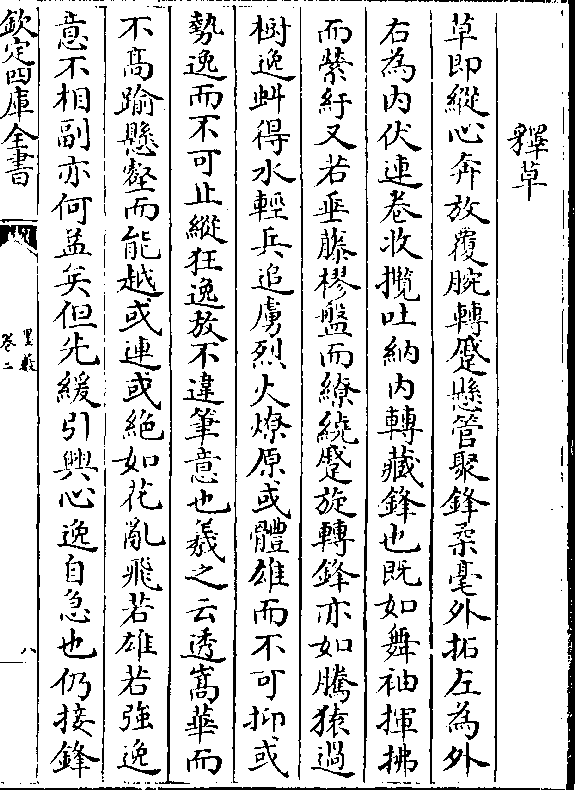 釋草
草即縱心奔放覆腕轉蹙懸管聚鋒柔毫外拓左為外
右為内伏連卷收攬吐納内轉藏鋒也既如舞袖揮拂
而縈紆又若垂藤樛盤而繚繞蹙旋轉鋒亦如騰猿過
樹逸虯得水輕兵追虜烈火燎原或體雄而不可抑或
勢逸而不可止縱狂逸放不違筆意也羲之云透嵩華而
不髙踰懸壑而能越或連或絶如花亂飛若雄若強逸
意不相副亦何益矣但先緩引興心逸自急也仍接鋒
欽定四庫全書
墨藪
卷二
八